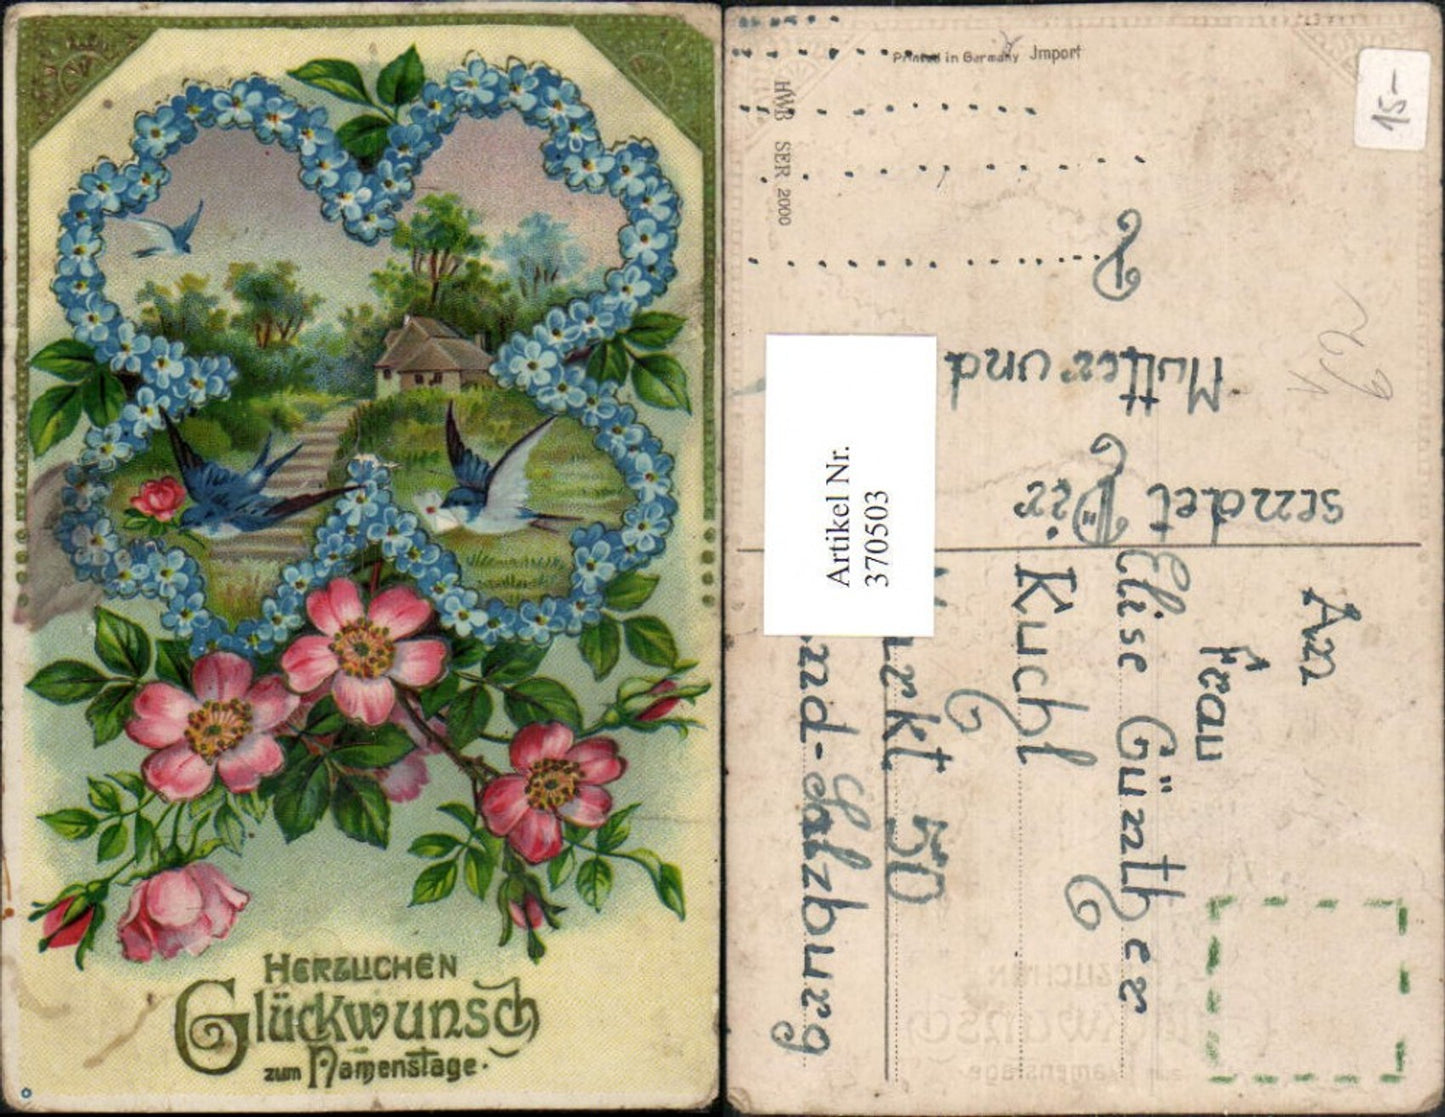 HERZLICHEN
Glückwunsch
zum Namenstage.
Printed in Germany Import
HWB SER 2000
15-
Artikel Nr.
370503
sendet Dir
Mutter und
An
Frau
Elise Günther
Kuchl
50
Salzburg